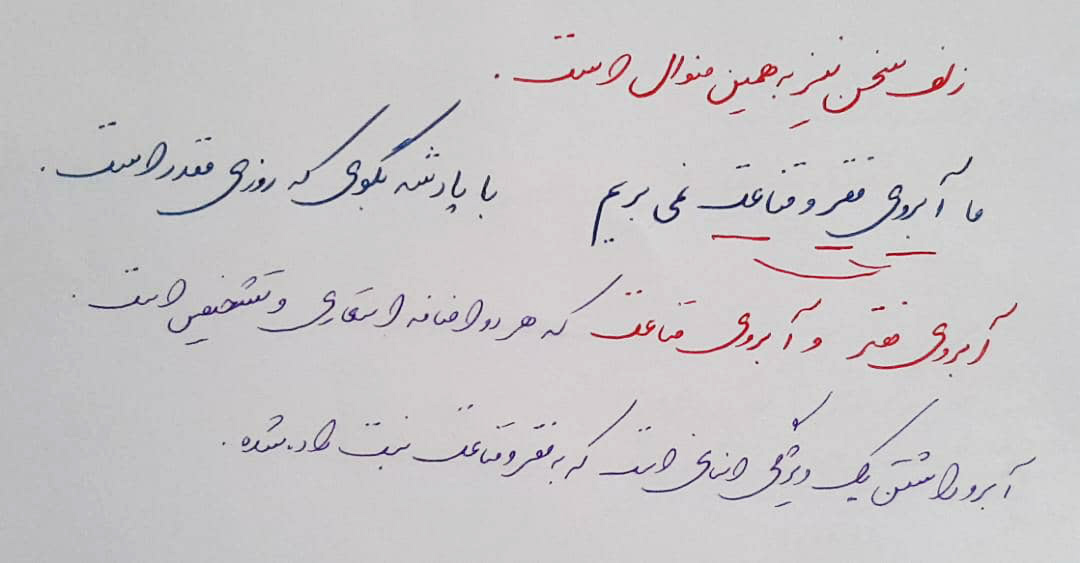 زلف سخن نیز به همین منوال است.
ما آبروی فقر و قناعت نمی بریم با پادشه بگوی که روزی مقدر است.
آبروی فقر و آبروی قناعت که هر دو اضافه استعاری و تشخیص است.
آبرو داشتن یک ویژگی انسانی است که به فقر و قناعت نسبت داده شده.